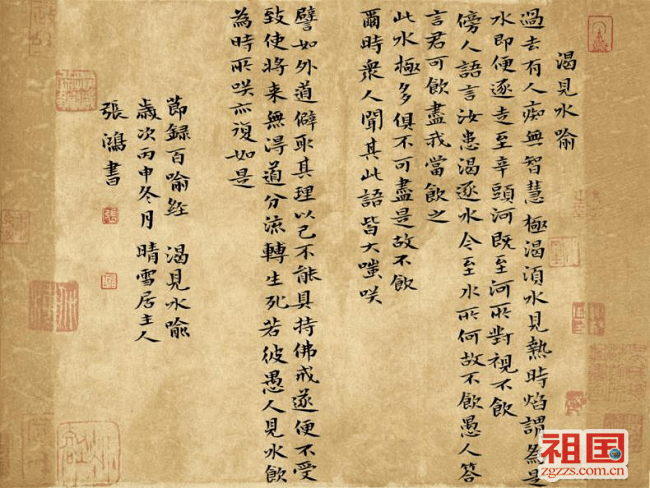 渴見水喻
過去有人痴無智慧極渴湏水見熱時焰謂為是
水即便逐走至辛頭河既至河所對視不飲
傍人語言汝患渴逐水今至水所何故不飲愚人答
言君可飲盡我當飲之
此水極多俱不可盡是故不飲
爾時衆人聞其此語皆大嗤咲
譬如外道僻取其理以己不能具持佛戒遂便不受
致使將来無得道分流轉生死若彼愚人見水飲
為時所咲亦復如是
節録百喻經 渴見水喻
歲次丙申冬月 晴雪居主人
張鴻書
祖国
zgzzs.com.cn